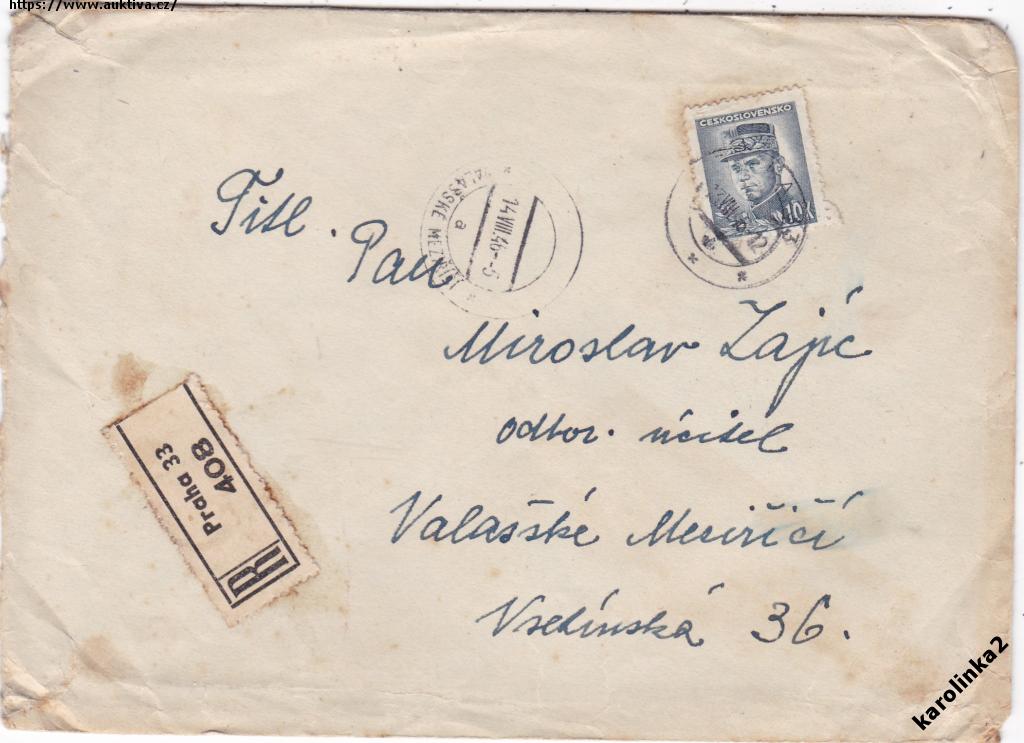 https://www.auktiva.cz/
ČESKOSLOVENSKO
10K
VALAŠSKÉ MEZ
14.VIII.46-5
a
Titl. Pan
Miroslav Zajíc
odbor. účitel
Valašské Meziříčí
Vsetínská 36.
R
Praha 33
408
karolinka2